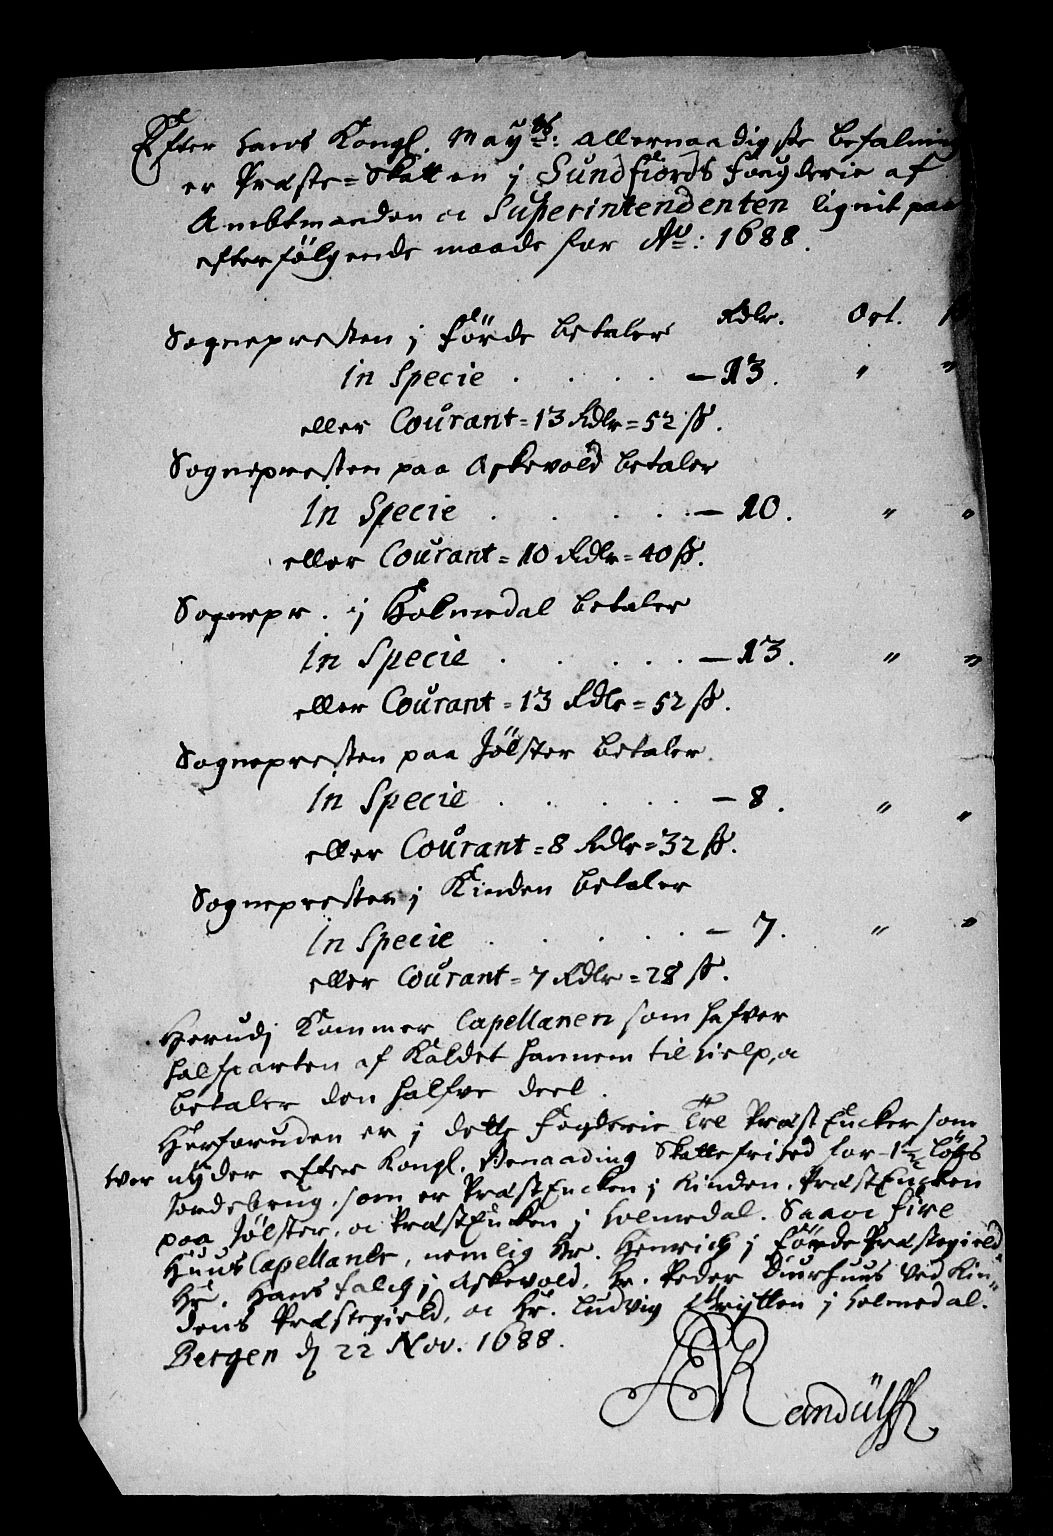 Efter hans Kongl. May^tz: allernaadigste befalning
er Præste=Skatten j Sundfiords fougderie af
Ambtmanden oc Superintendenten lignit paa
efterfölgende maade for A^o: 1688.
Rdlr. Ort. ß
Sognepresten j Förde betaler
In Specie . . . . . — 13. " "
eller Courant = 13 Rdlr = 52 ß.
Sognepresten paa Askevold betaler
In Specie . . . . . — 10. " "
eller Courant = 10 Rdlr = 40 ß.
Sognepr. j Holmedal betaler
In Specie . . . . . — 13. " "
eller Courant = 13 Rdlr = 52 ß.
Sognepresten paa Jölster betaler
In Specie . . . . . — 8. " "
eller Courant = 8 Rdlr = 32 ß.
Sognepresten j Kinden betaler
In Specie . . . . . — 7. " "
eller Courant = 7 Rdlr = 28 ß.
Herudj kommer Capellanen som hafver
halfparten af Kaldet hannem til hielp, oc
betaler den halfve deel.
Herforuden er j dette fogderie Tre Præst Encker som
hver nyder efter Kongl. Benaading Skattefrihed for 1 Löbs
Jordebrug, som er PræstEncken j Kinden, PræstEncken
paa Jölster, oc PræstEncken j Holmedal. Saa oc fire
Huus Capellaner, nemlig Hr. Henrich j Förde Præstegield
Hr. Hans Falch j Askevold, Hr. Peder Duurhuus ved Kin=
dens Præstegield, oc Hr. Ludvig Grytten j Holmedal.
Bergen d 22 Nov. 1688.
Randülff